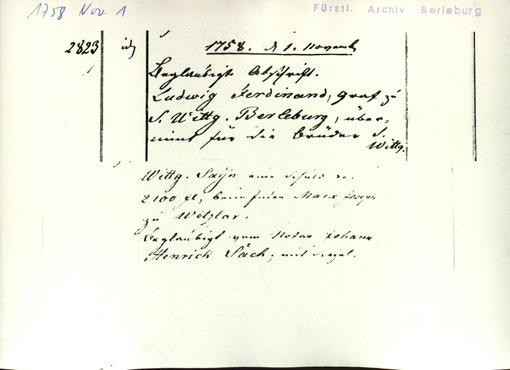 1758 Nov. 1
Fürstl. Archiv Berleburg
2823
1758. d 1. Novemb
Beglaubigte Abschrift.
Ludwig Ferdinand, Graf zu
S. Wittg. Berleburg, über-
nimt für die Brüder S.
Wittg.
Wittg. Sayn eine Schuld v.
2100 fl, beim Juden Marx Joseph
zu Wetzlar.
Beglaubigt vom Notar Johann
Henrich Sach, mit Siegel.